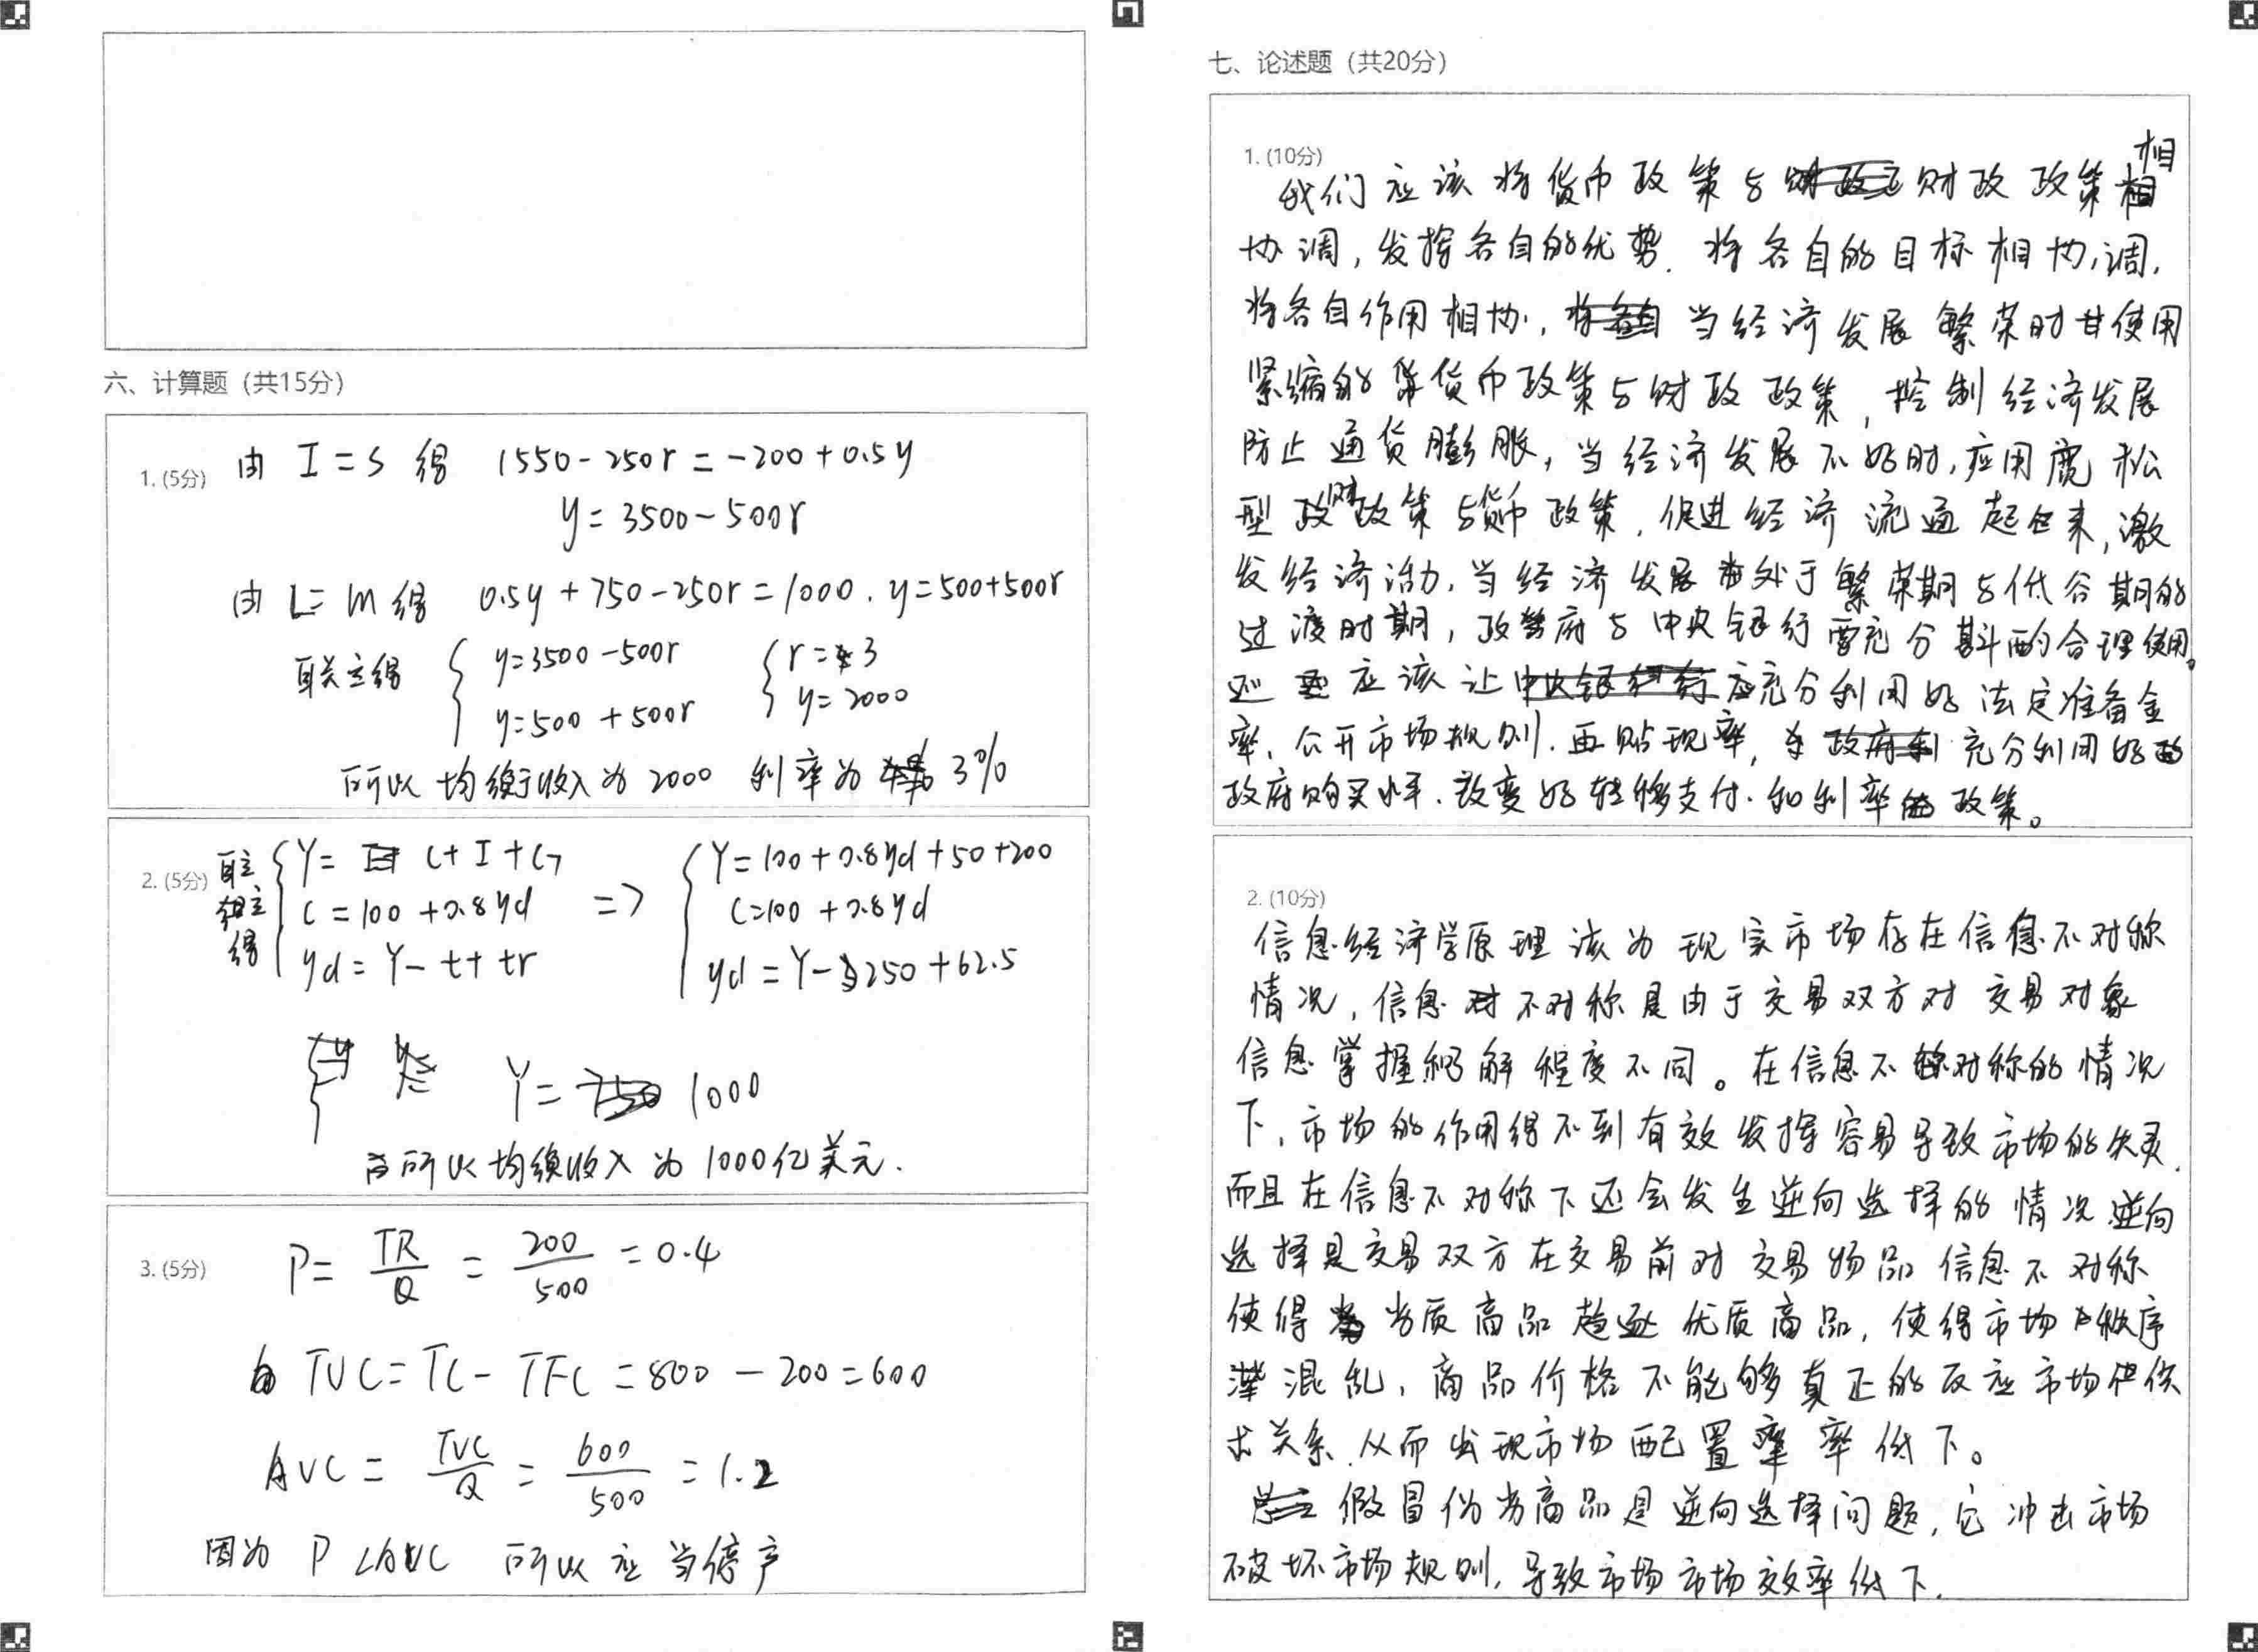 六、计算题（共15分）
1. (5分) 由 I = S 得 1550-250r = -200+0.5y
y = 3500-500r
由 L = m 得 0.5y+750-250r=1000. y=500+500r
联立得 { y=3500-500r { r=3
y=500+500r y=2000
所以均衡收入为2000 利率为 3%
2. (5分) 联立 { Y= C+I+G { Y=100+0.8yd+50+200
组立 C=100+0.8yd => C=100+0.8yd
得 yd=Y-t+tr yd=Y-250+62.5
Y= 1000
所以均衡收入为1000亿美元.
3. (5分) P= TR/Q = 200/500 =0.4
TVC=TC-TFC=800-200=600
AVC= TVC/Q = 600/500 =1.2
因为 P<AVC 所以应当停产
七、论述题（共20分）
1. (10分)
我们应该将货币政策与财政政策相
协调,发挥各自的优势.将各自的目标相协调,
将各自作用相协, 当经济发展繁荣时使用
紧缩的货币政策与财政政策,控制经济发展
防止通货膨胀,当经济发展不好时,应用宽松
型财政策与货币政策,促进经济流通起来,激
发经济活力,当经济发展处于繁荣期与低谷期的
过渡时期,政府与中央银行要充分斟酌合理使用。
还应该让应充分利用好法定准备金
率、公开市场规则.再贴现率, 充分利用好
政府购买水平.改变好转移支付.和利率政策。
2. (10分)
信息经济学原理该为现实市场存在信息不对称
情况,信息不对称是由于交易双方对交易对象
信息掌握了解程度不同。在信息不对称的情况
下,市场的作用得不到有效发挥容易导致市场的失灵.
而且在信息不对称下还会发生逆向选择的情况逆向
选择是交易双方在交易前对交易物品信息不对称
使得劣质商品趋逐优质商品,使得市场秩序
混乱,商品价格不能够真正的反应市场供
求关系.从而出现市场配置率低下。
假冒伪劣商品是逆向选择问题,它冲击市场
破坏市场规则,导致市场市场效率低下.